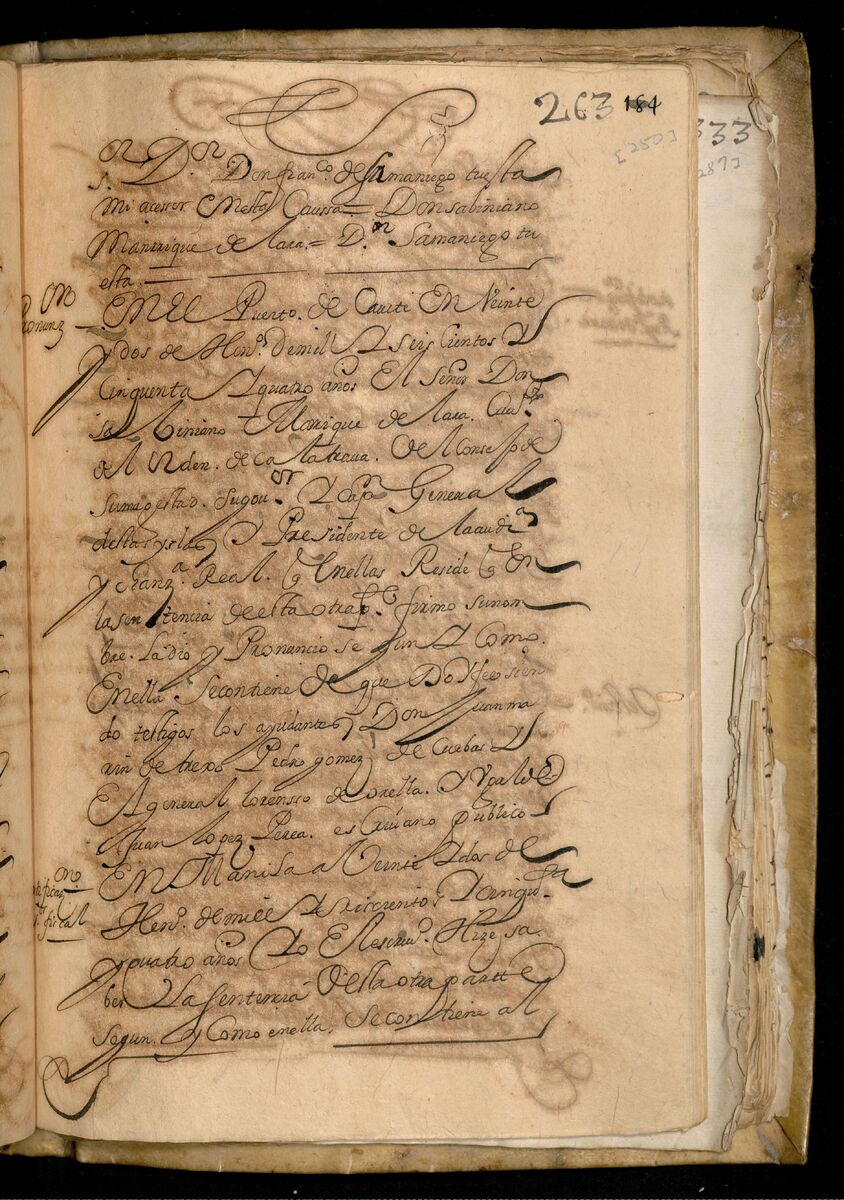 263 184
[250]
333
287]
s.or D.or Don fran.co de Samaniego tuesta
mi acessor En esta Caussa = Don sabiniano
Manrrique de Lara. = D.or Samaniego tu
esta.
En El Puerto. de Cauiti En Veinte
y dos de Hen.o de mill Y seis cientos Y
Cinquenta Y quatro años El señor Don
sabiniano Manrique de Lara. Cau.o
del Orden. de Calatraua. Del Consejo de
su magestad. su gou.or Y Cap.n General
destas yslas Y Presidente de la audi.a
y chanz.a Real. q En ellas Reside q En
la sentencia de esta otra p.te firmo su nom
bre. La dio y Pronuncio segun Y Como.
En ella se contiene de que Doy fee sien
do testigos los ayudantes Don Juan ma
rin de trexo Pedro gomez de Cuebas Y
El general lorensso de orella. Y Vgalde
Juan Lopez Perea. escriuano Publico
En Manila a Veinte Y dos de
Hen.o de mill Y seiscientos Y cinqu.ta
y quatro años Yo El escriu.o Hize sa
ber La sentencia Desta otra partte
segun. y Como en ella. se contiene al
fiscal